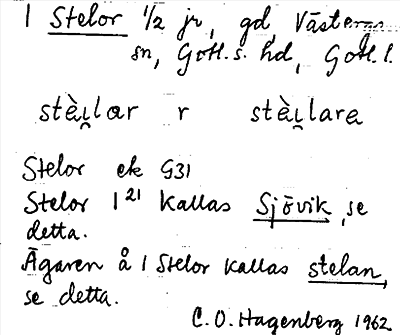 1 Stelor 1/2 jr, gd, Västergarns
sn, Gotl. s. hd, Gotl. l.
stè̀ı̯lar r stè̀ı̯lara
Stelor ek G31
Stelor 1²¹ kallas Sjövik, se
detta.
Ägaren å 1 Stelor kallas stelan,
se detta.
C. O. Hagenberg 1962